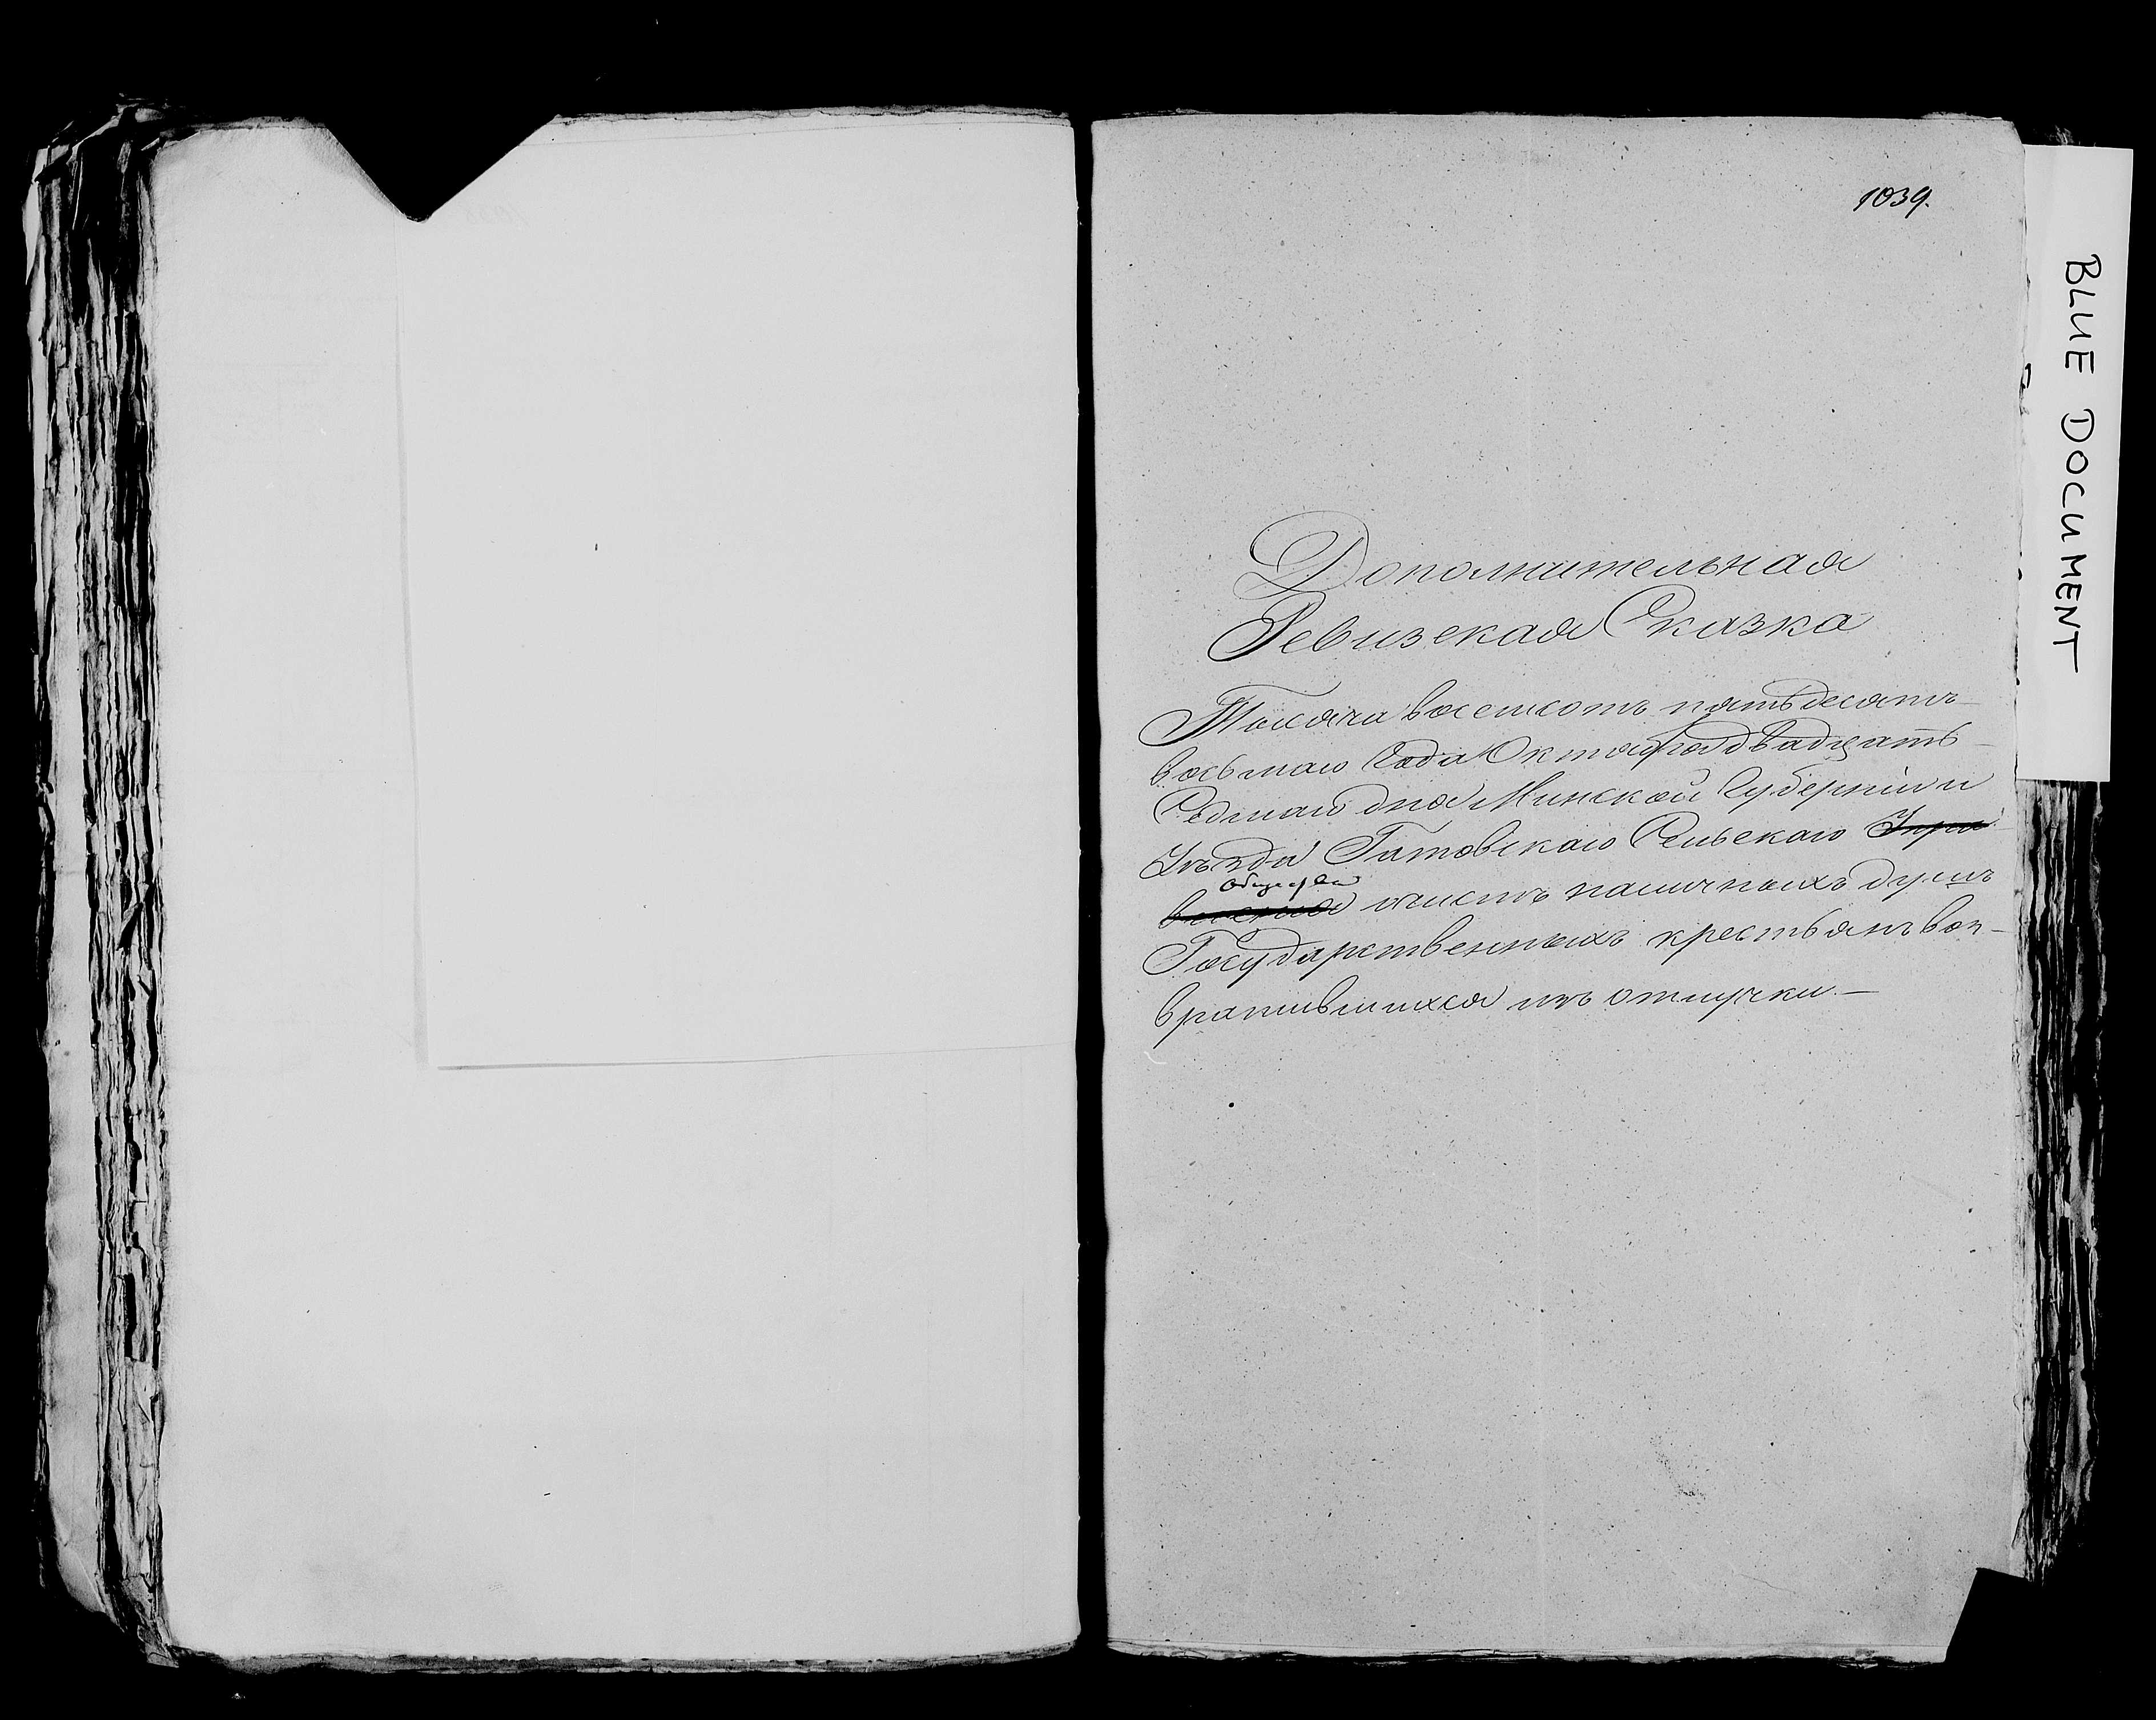 1039.
BLUE DOCUMENT
Дополнительная
Ревизская Сказка
Тысяча восемсотъ пятьдесятъ
восьмаго Года Октября двадцать
Седмаго дня Минской Губерніи и
Уѣзда Гатовскаго Сельскаго Упра
Общества
вленія о числѣ наличныхъ душъ
Государственныхъ крестьянъ воз-
вратившихся изъ отлучки.—